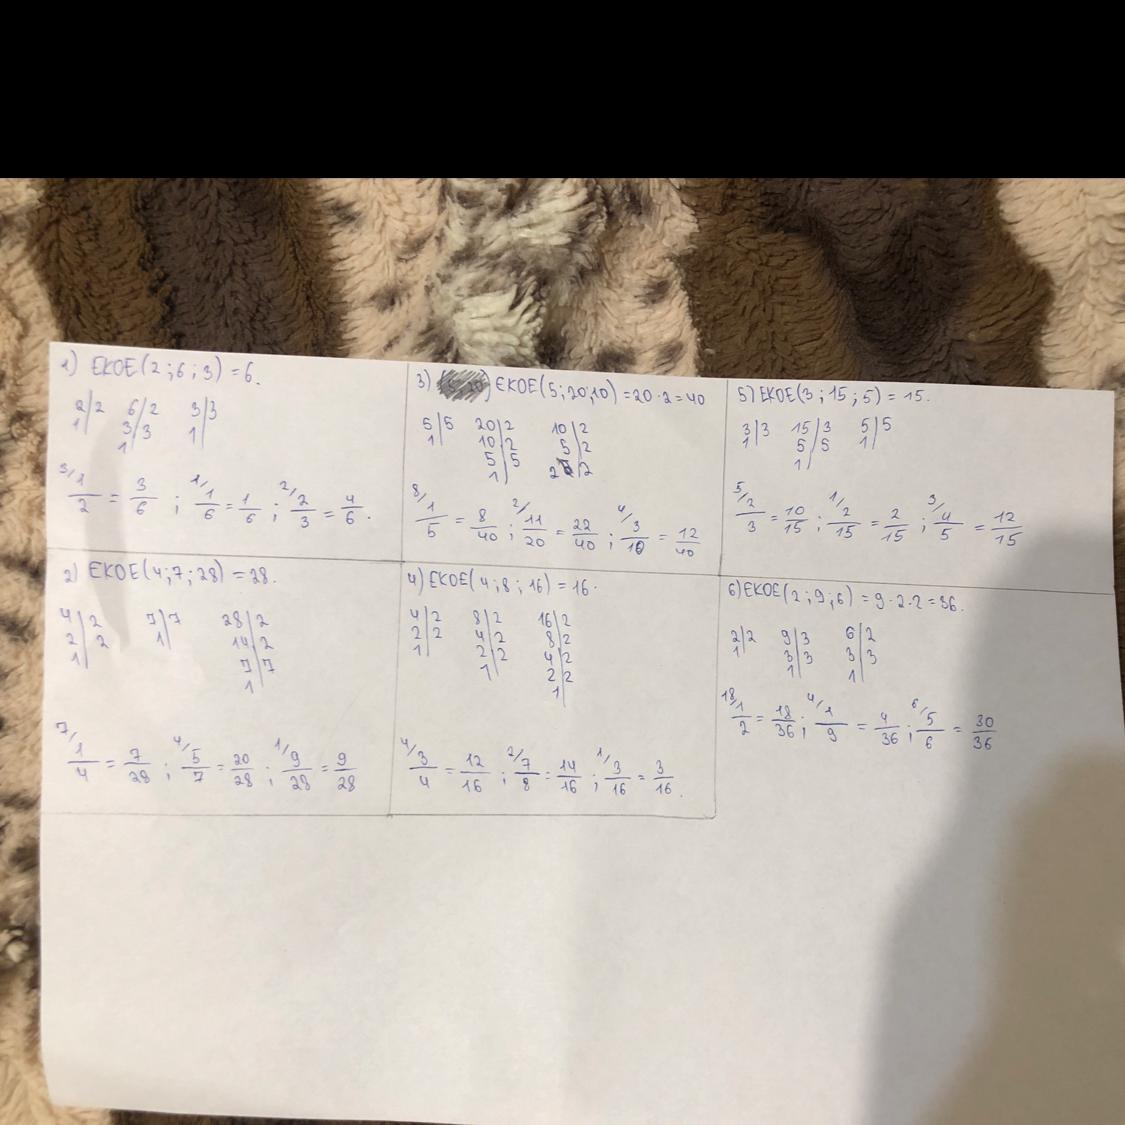 1) EKOE(2;6;3) = 6.
2|2 6|2 3|3
1| 3|3 1|
1|
3/ 1/2 = 3/6 ; 1/ 1/6 = 1/6 ; 2/ 2/3 = 4/6.
2) EKOE(4;7;28) = 28.
4|2 7|7 28|2
2|2 1| 14|2
1| 7|7
1|
7/ 1/4 = 7/28 ; 4/ 5/7 = 20/28 ; 1/ 9/28 = 9/28
3) EKOE(5;20;10) = 20·2 = 40
5|5 20|2 10|2
1| 10|2 5|2
5|5 2|2
1|
8/ 1/5 = 8/40 ; 2/ 11/20 = 22/40 ; 4/ 3/10 = 12/40
4) EKOE(4;8;16) = 16.
4|2 8|2 16|2
2|2 4|2 8|2
1| 2|2 4|2
1| 2|2
1|
4/ 3/4 = 12/16 ; 2/ 7/8 = 14/16 ; 1/ 3/16 = 3/16.
5) EKOE(3;15;5) = 15.
3|3 15|3 5|5
1| 5|5 1|
1|
5/ 2/3 = 10/15 ; 1/ 2/15 = 2/15 ; 3/ 4/5 = 12/15
6) EKOE(2;9;6) = 9·2·2 = 36.
2|2 9|3 6|2
1| 3|3 3|3
1| 1|
18/ 1/2 = 18/36 ; 4/ 1/9 = 4/36 ; 6/ 5/6 = 30/36